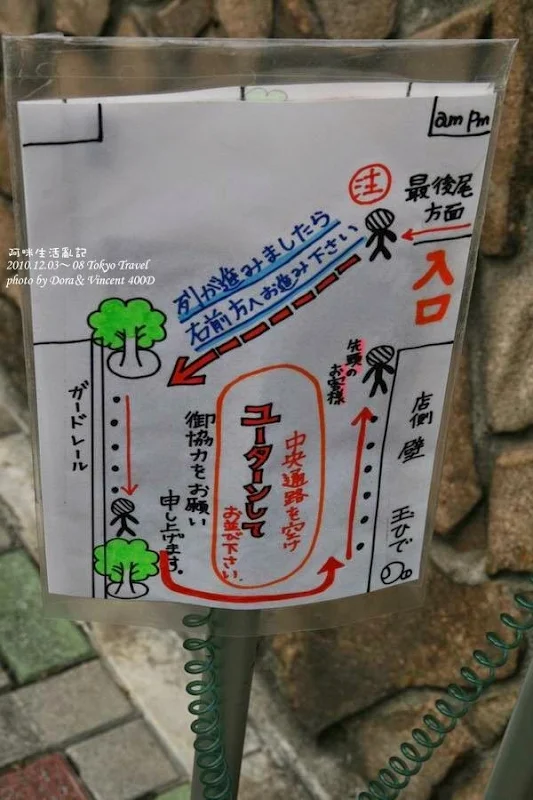 am pm
注
最後尾
方面
入口
列が進みましたら
右前方へお進み下さい
先頭の
お客様
店側 壁
玉ひで
中央通路を空け
ユーターンして
お並び下さい。
御協力をお願い
申し上げます。
ガードレール
阿咪生活亂記
2010.12.03~08 Tokyo Travel
photo by Dora & Vincent 400D